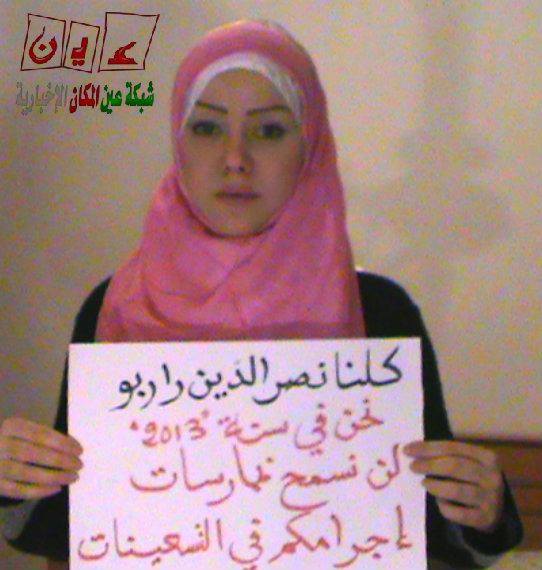 عين
شبكة عين المكان الإخبارية
كلنا نصر الدين راربو
نحن في سنة "2013"
لن نسمح بممارسات
إجرامكم في التسعينات